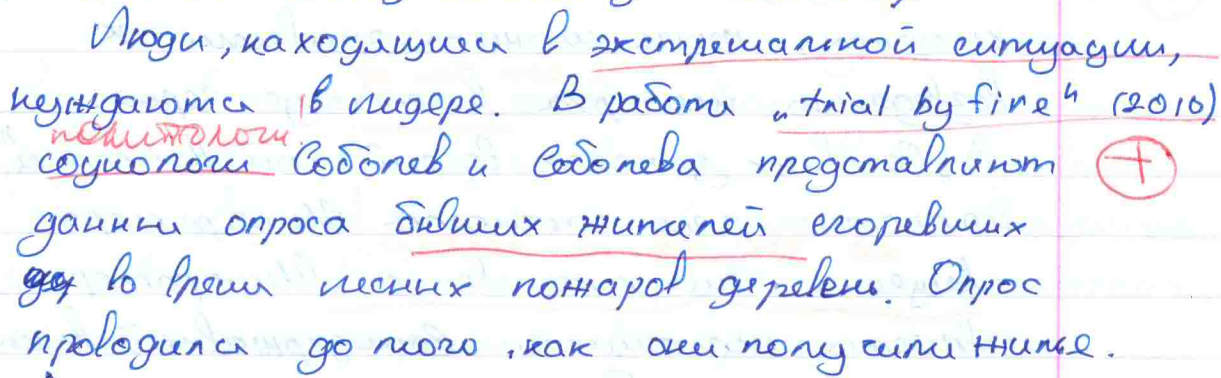 Люди, находящиеся в экстремальной ситуации,
нуждаются в лидере. В работе „trial by fire“ (2010)
политологи
социологи Соболев и Соболева представляют +
данные опроса бывших жителей сгоревших
во время лесных пожаров деревень. Опрос
проводился до того, как они получили жилье.